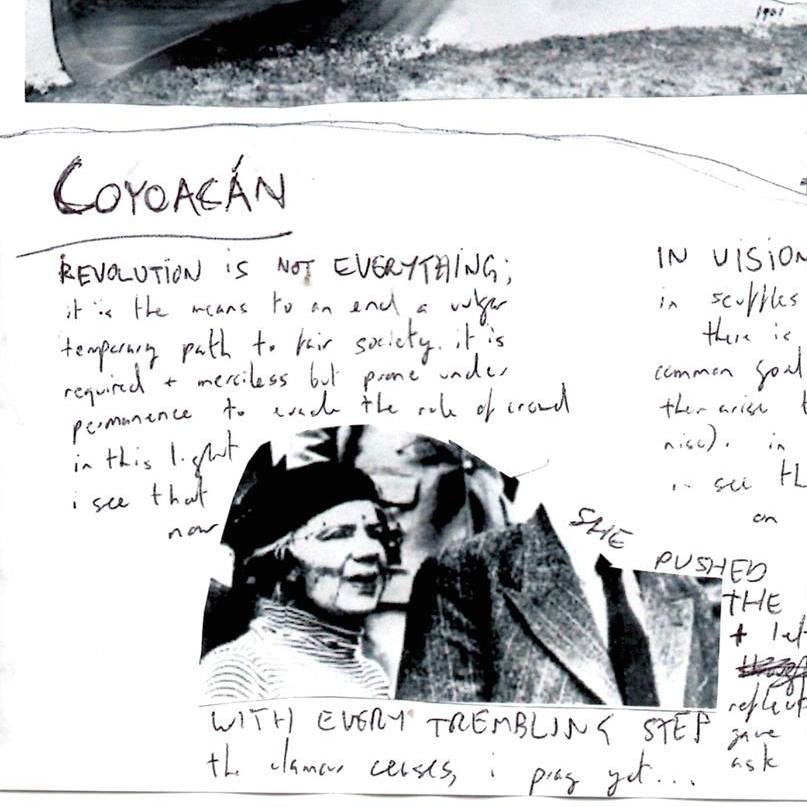 1961
COYOACÁN
REVOLUTION iS NOT EVERYTHING;
it is the means to an end a vulgar
temporary path to fair society. it is
required + merciless but prone under
permanence to evade the rule of crowd
in this light
i see that
now
WITH EVERY TREMBLING STEP
the clamour ceases, i pray yet...
IN VISION
in scuffles
there is
common goal
then arise
nise). in
see th
on
SHE PUSHED
THE
+ let
reflect
gave
ask